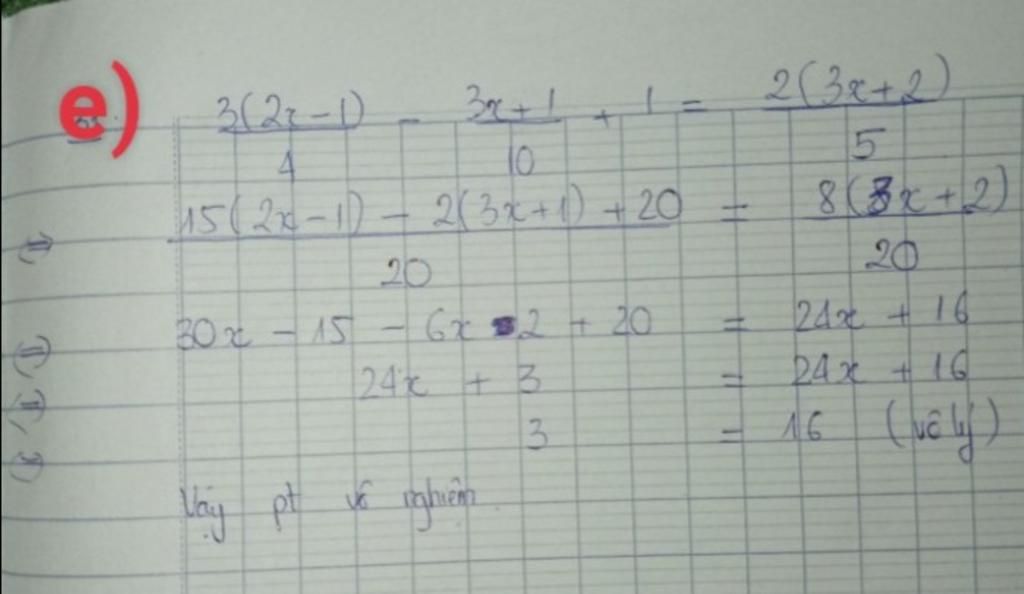 e) 3(2x-1)/4 - 3x+1/10 + 1 = 2(3x+2)/5
⇔ 15(2x-1) - 2(3x+1) + 20/20 = 8(3x+2)/20
⇔ 30x - 15 - 6x - 2 + 20 = 24x + 16
⇔ 24x + 3 = 24x + 16
⇔ 3 = 16 (vô lý)
Vậy pt vô nghiệm